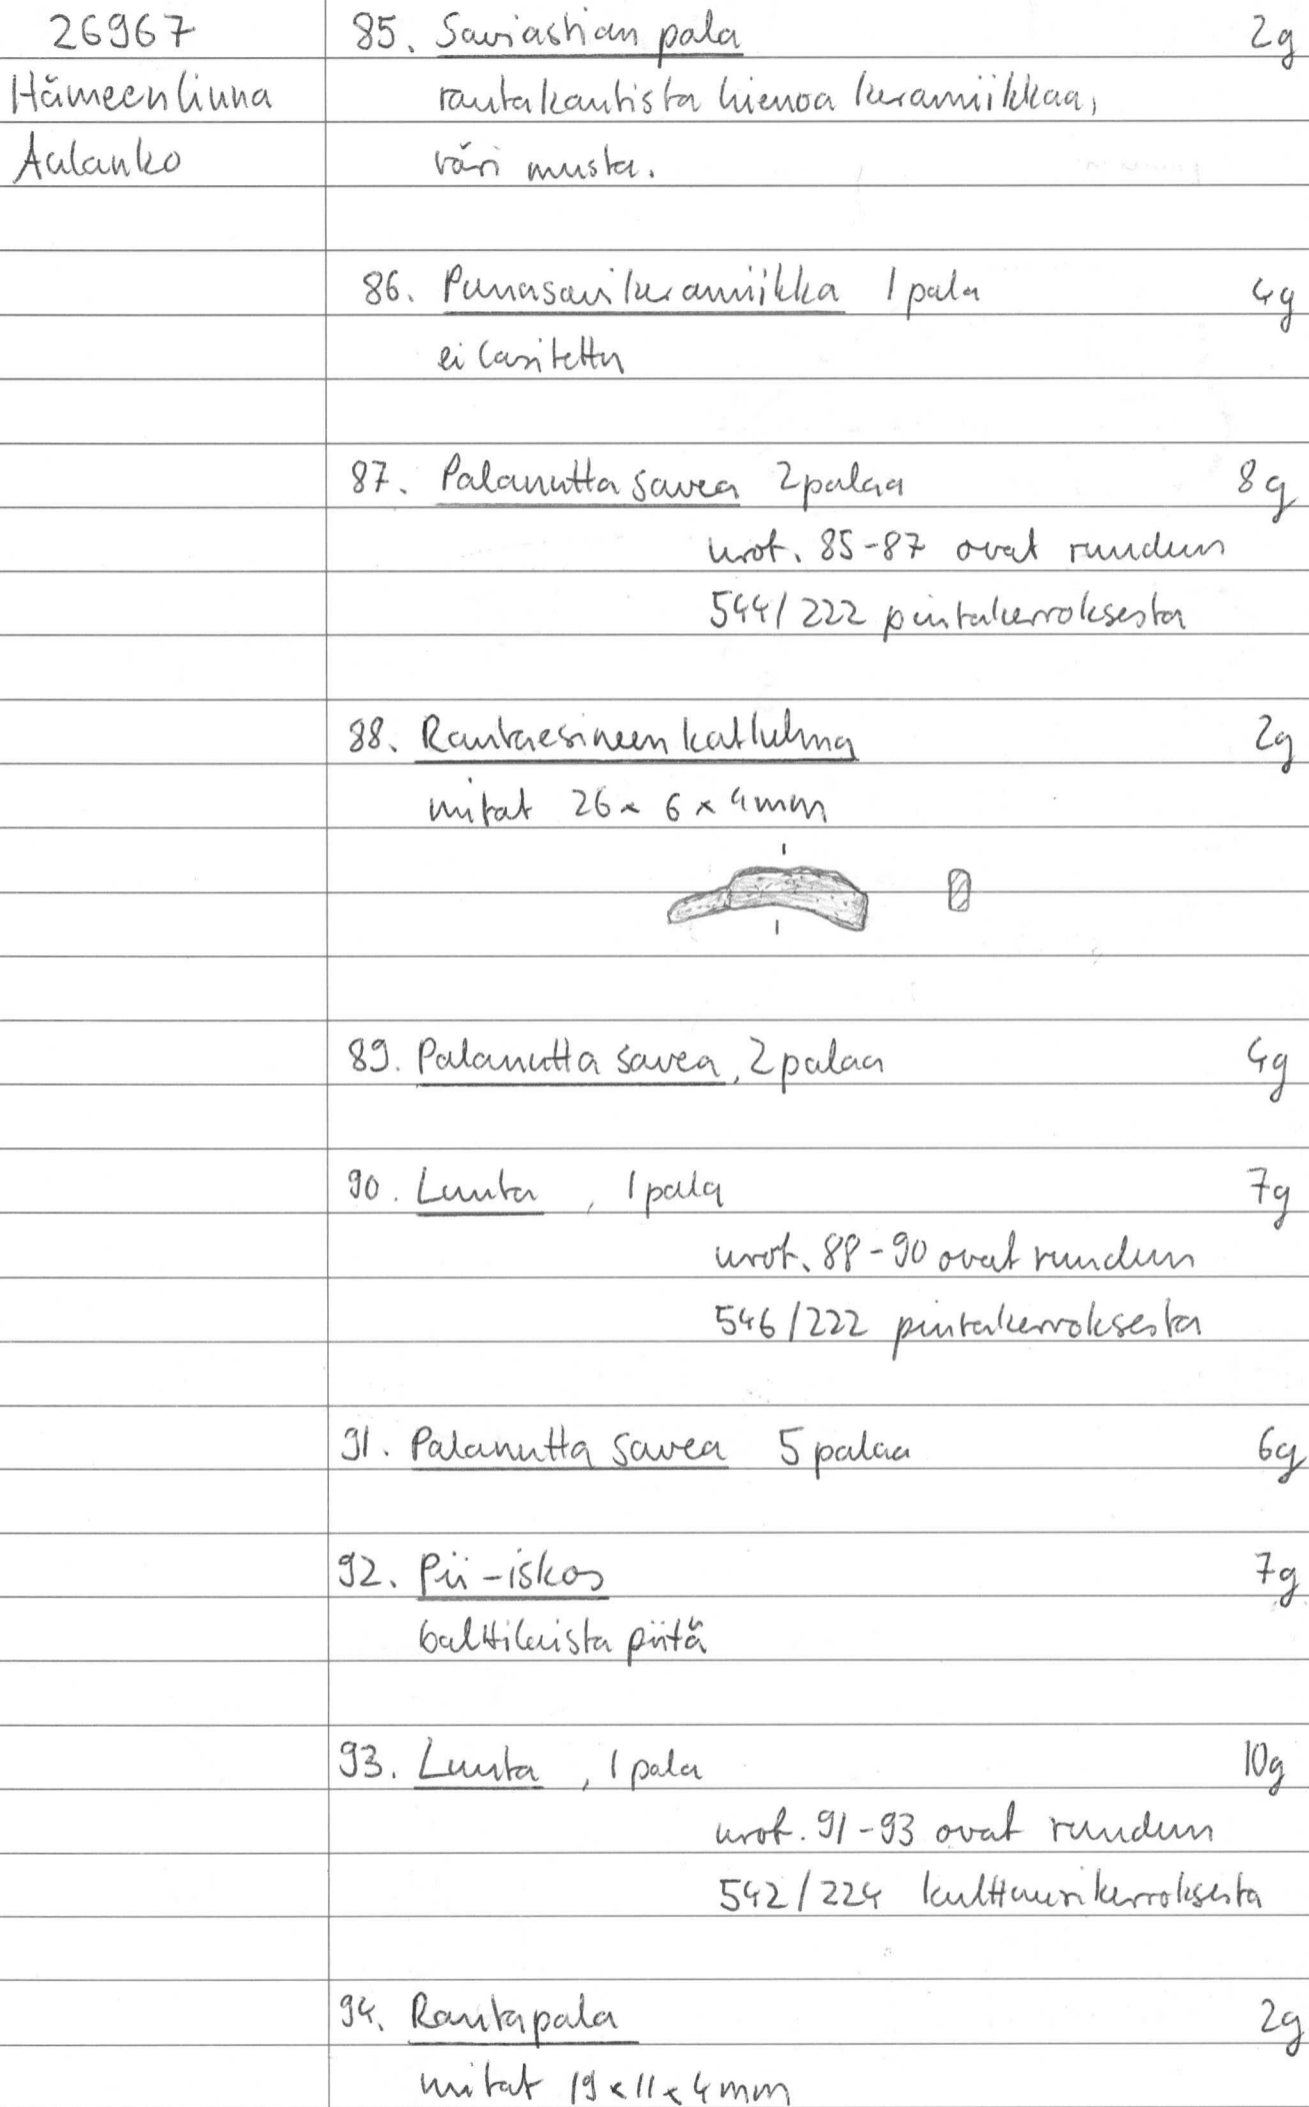 26967
Hämeenlinna
Aulanko
85. Saviastian pala 2g
rautakautista hienoa keramiikkaa,
väri musta.
86. Punasavikeramiikka 1 pala 4g
ei lasitettu
87. Palanutta savea 2 palaa 8g
nrot. 85-87 ovat ruudun
544/222 pintakerroksesta
88. Rautaesineen katkelma 2g
mitat 26 x 6 x 4 mm
89. Palanutta savea, 2 palaa 4g
90. Luuta , 1 pala 7g
nrot. 88-90 ovat ruudun
546/222 pintakerroksesta
91. Palanutta savea 5 palaa 6g
92. Pii-iskos 7g
balttilaista piitä
93. Luuta , 1 pala 10g
nrot. 91-93 ovat ruudun
542/224 kulttuurikerroksesta
94. Rautapala 2g
mitat 19 x 11 x 4 mm